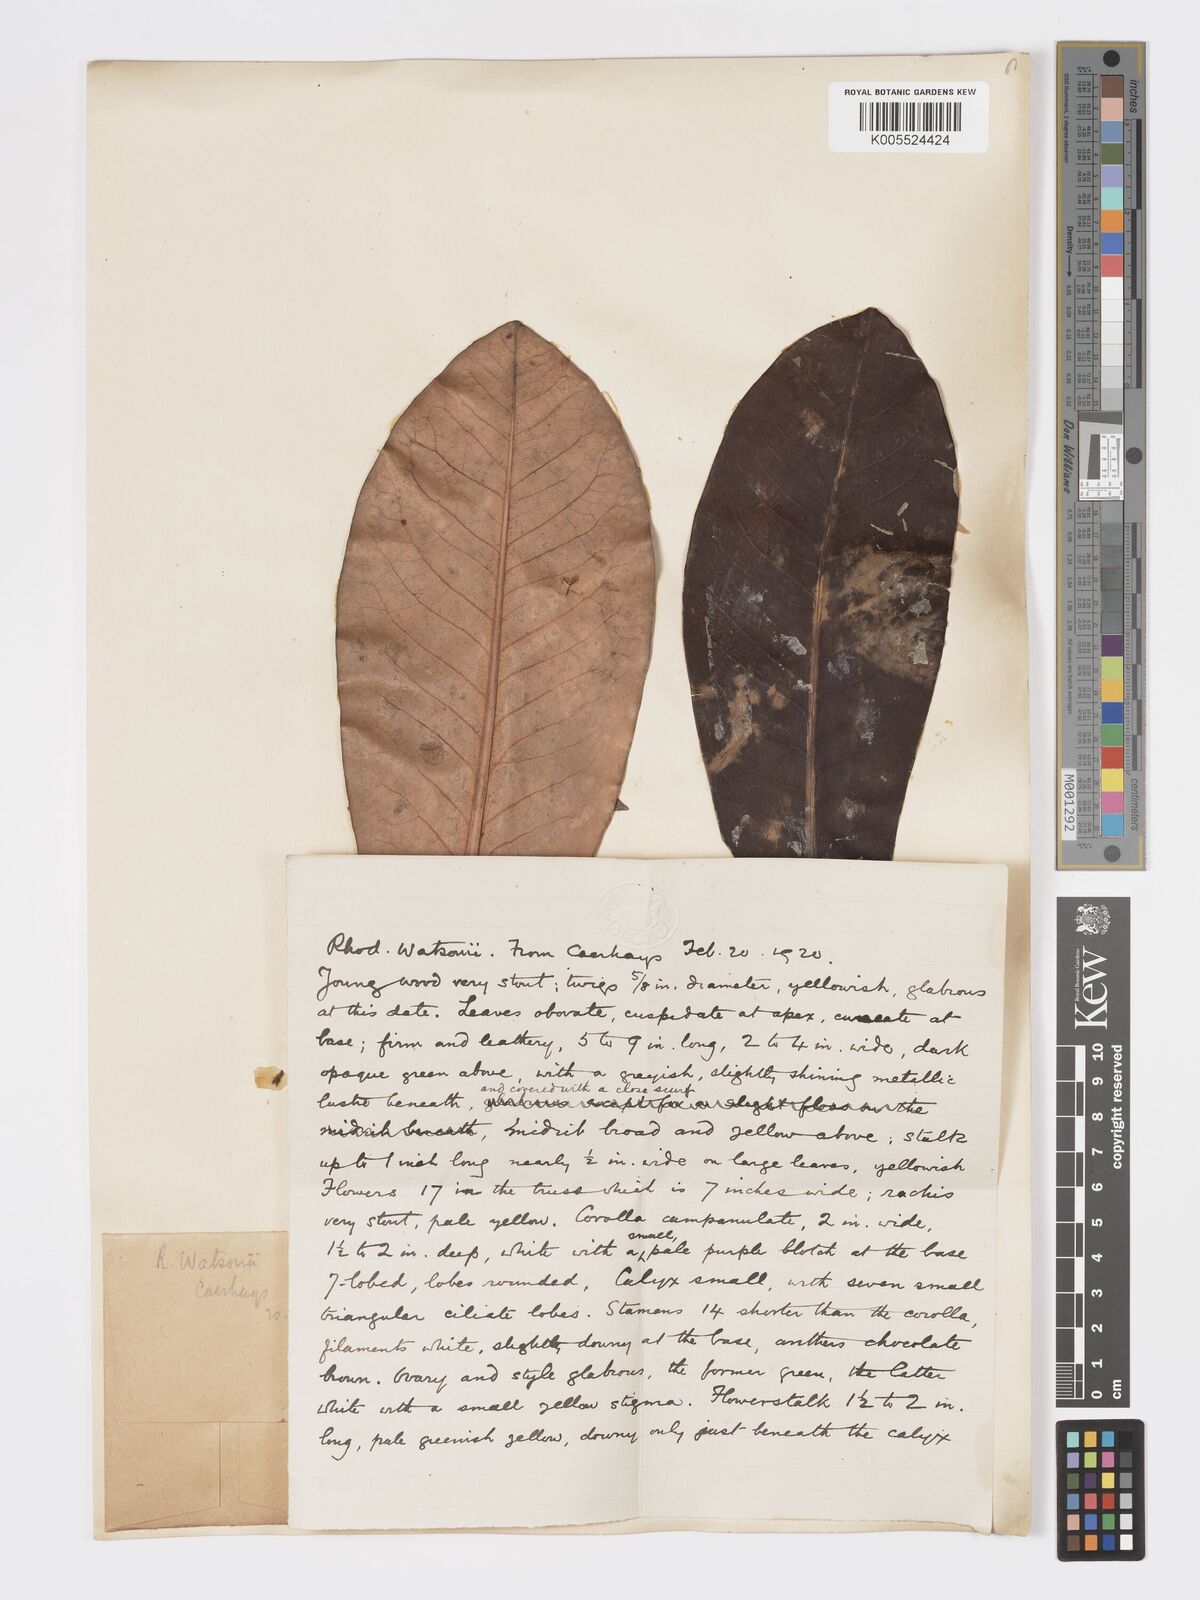 ROYAL BOTANIC GARDENS KEW
K005524424
Rhod. Watsonii. From Caerhays Feb. 20. 1920.
Young wood very stout; twigs 5/8 in. diameter, yellowish, glabrous
at this date. Leaves obovate, cuspidate at apex, cuneate at
base; firm and leathery, 5 to 9 in. long, 2 to 4 in. wide, dark
opaque green above, with a greyish, slightly shining metallic
and covered with a close scurf
lustre beneath, glabrous except for a slight floss on the
midrib beneath, midrib broad and yellow above; stalk
up to 1 inch long nearly ½ in. wide on large leaves, yellowish
Flowers 17 in the truss which is 7 inches wide; rachis
very stout, pale yellow. Corolla campanulate, 2 in. wide,
1½ to 2 in. deep, white with a small, pale purple blotch at the base
7-lobed, lobes rounded, Calyx small, with seven small
triangular ciliate lobes. Stamens 14 shorter than the corolla,
filaments white, slightly downy at the base, anthers chocolate
brown. Ovary and style glabrous, the former green, the latter
white with a small yellow stigma. Flowerstalk 1½ to 2 in.
long, pale greenish yellow, downy only just beneath the calyx
R. Watsonii
Caerhays
20.
inches
centimeters
Density
Don Williams
M001292
Royal Botanic Gardens
Kew
copyright reserved
0 1 2 3 4 5 6 7 8 9 10
cm